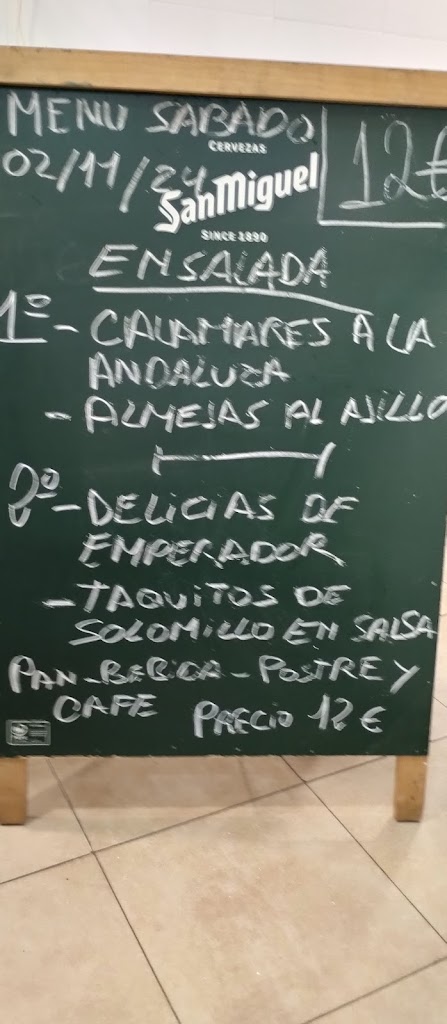 MENU SABADO
CERVEZAS
02/11/24
12€
SanMiguel
SINCE 1890
ENSALADA
1º - CALAMARES A LA
ANDALUZA
- ALMEJAS AL AJILLO
2º - DELICIAS DE
EMPERADOR
- TAQUITOS DE
SOLOMILLO EN SALSA
PAN - BEBIDA - POSTRE Y
CAFE PRECIO 12 €